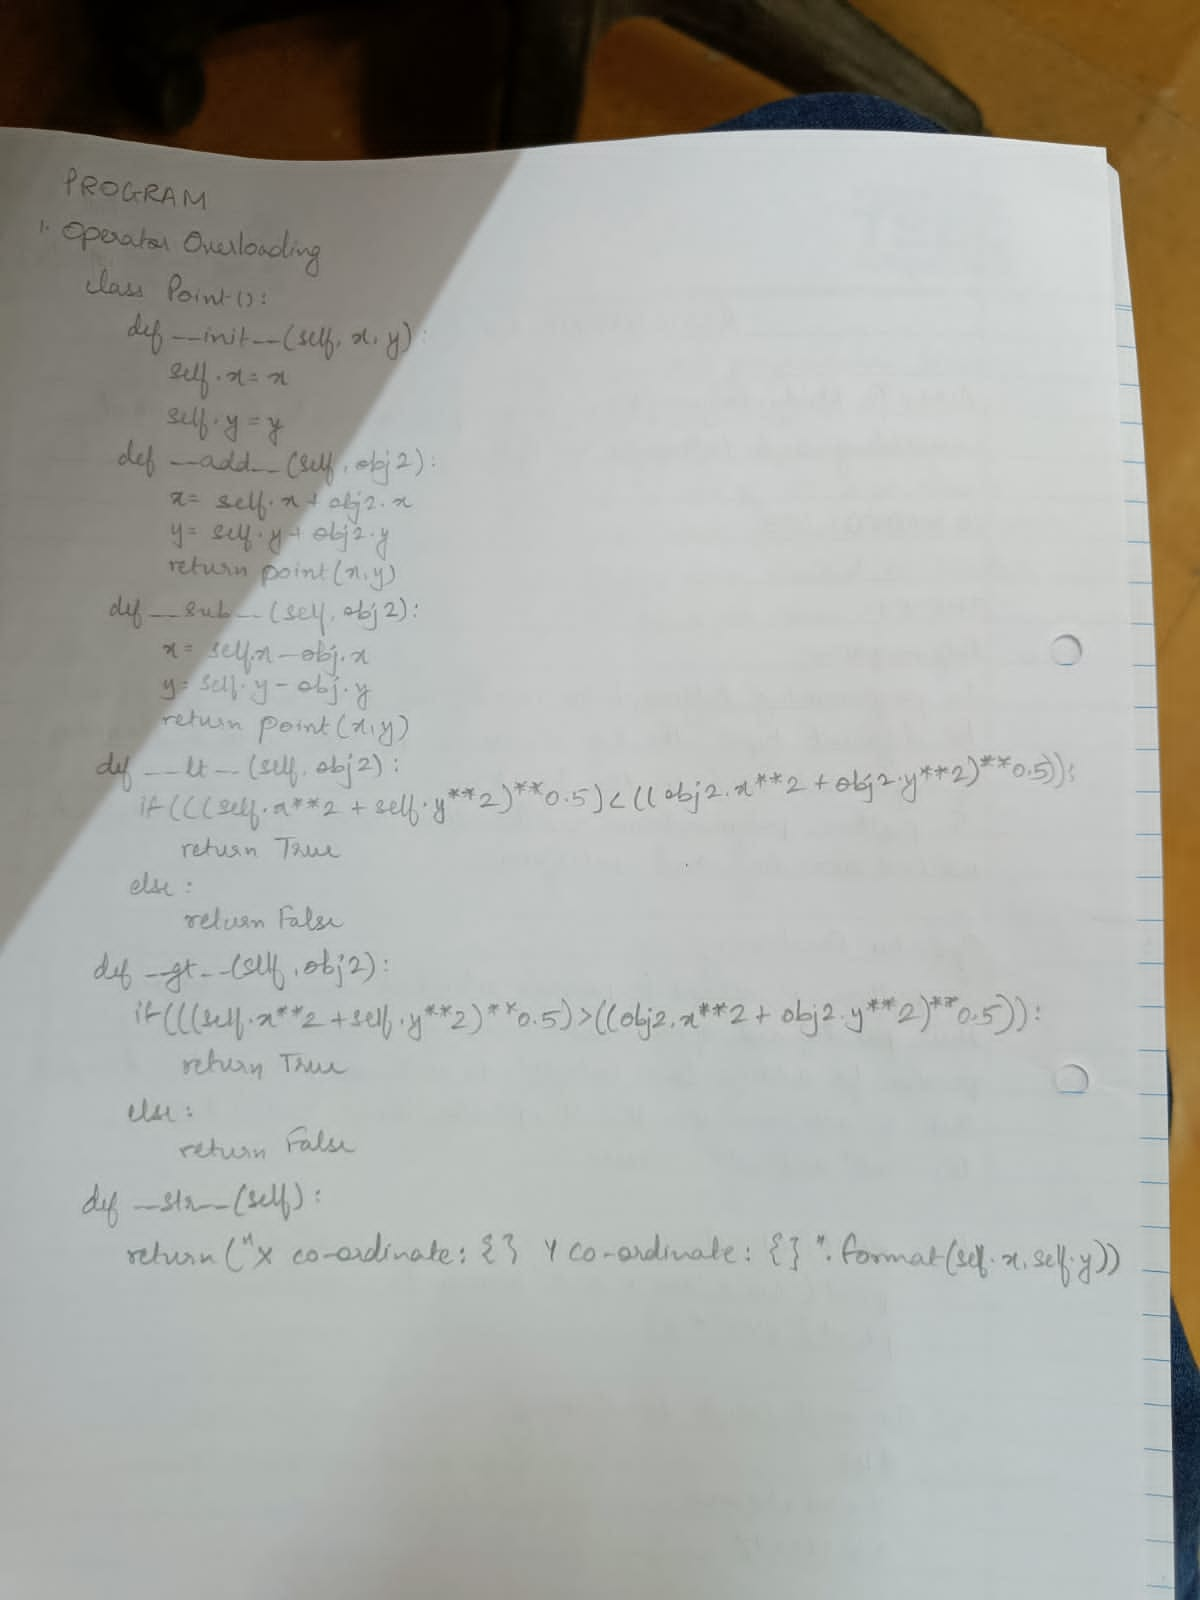 PROGRAM
1. Operator Overloading
class Point():
def __init__(self, x, y):
self.x = x
self.y = y
def __add__(self, obj2):
x = self.x + obj2.x
y = self.y + obj2.y
return point(x,y)
def __sub__(self, obj2):
x = self.x - obj.x
y = self.y - obj.y
return point(x,y)
def __lt__(self, obj2):
if(((self.x**2 + self.y**2)**0.5) < ((obj2.x**2 + obj2.y**2)**0.5)):
return True
else:
return False
def __gt__(self, obj2):
if(((self.x**2 + self.y**2)**0.5) > ((obj2.x**2 + obj2.y**2)**0.5)):
return True
else:
return False
def __str__(self):
return("X co-ordinate: {} Y co-ordinate: {}".format(self.x, self.y))